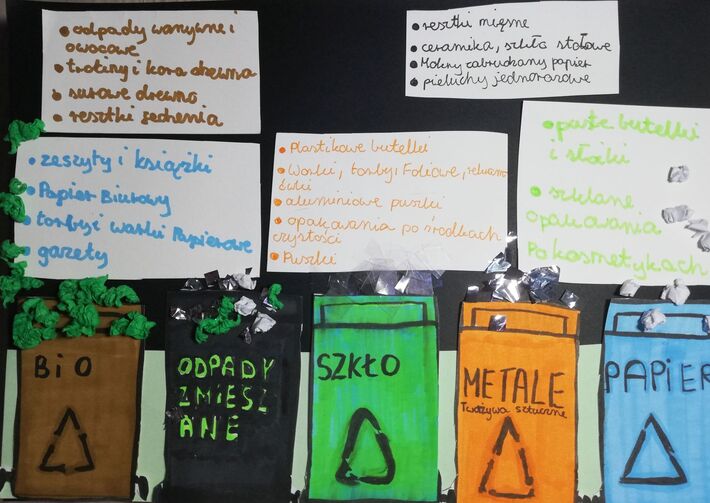 • odpady warzywne i
owocowe
• trociny i kora drzewna
• surowe drewno
• resztki jedzenia
• resztki mięsne
• ceramika, szkło stołowe
• Mokry zabrudzony papier
• pieluchy jednorazowe
• zeszyty i książki
• Papier Biurowy
• torby i worki Papierowe
• gazety
• Plastikowe butelki
• Worki, torby: Foliowe, reklamo
ówki
• aluminiowe puszki
• opakowania po środkach
czystości
• Puszki
• puste butelki
i słoiki
• szklane
opakowania
Po kosmetykach
BiO
ODPADY
ZMIESZ
ANE
SZKŁO
METALE
Tworzywa sztuczne
PAPIER